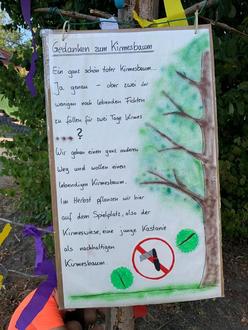 Gedanken zum Kirmesbaum
Ein ganz schön toter Kirmesbaum...
Ja genau - aber zwei der
wenigen noch lebenden Fichten
zu fällen für zwei Tage Kirmes
....?
Wir gehen einen ganz anderen
Weg und wollen einen
lebendigen Kirmesbaum.
Im Herbst pflanzen wir hier
auf dem Spielplatz, also der
Kirmeswiese, eine junge Kastanie
als nachhaltigen
Kirmesbaum.